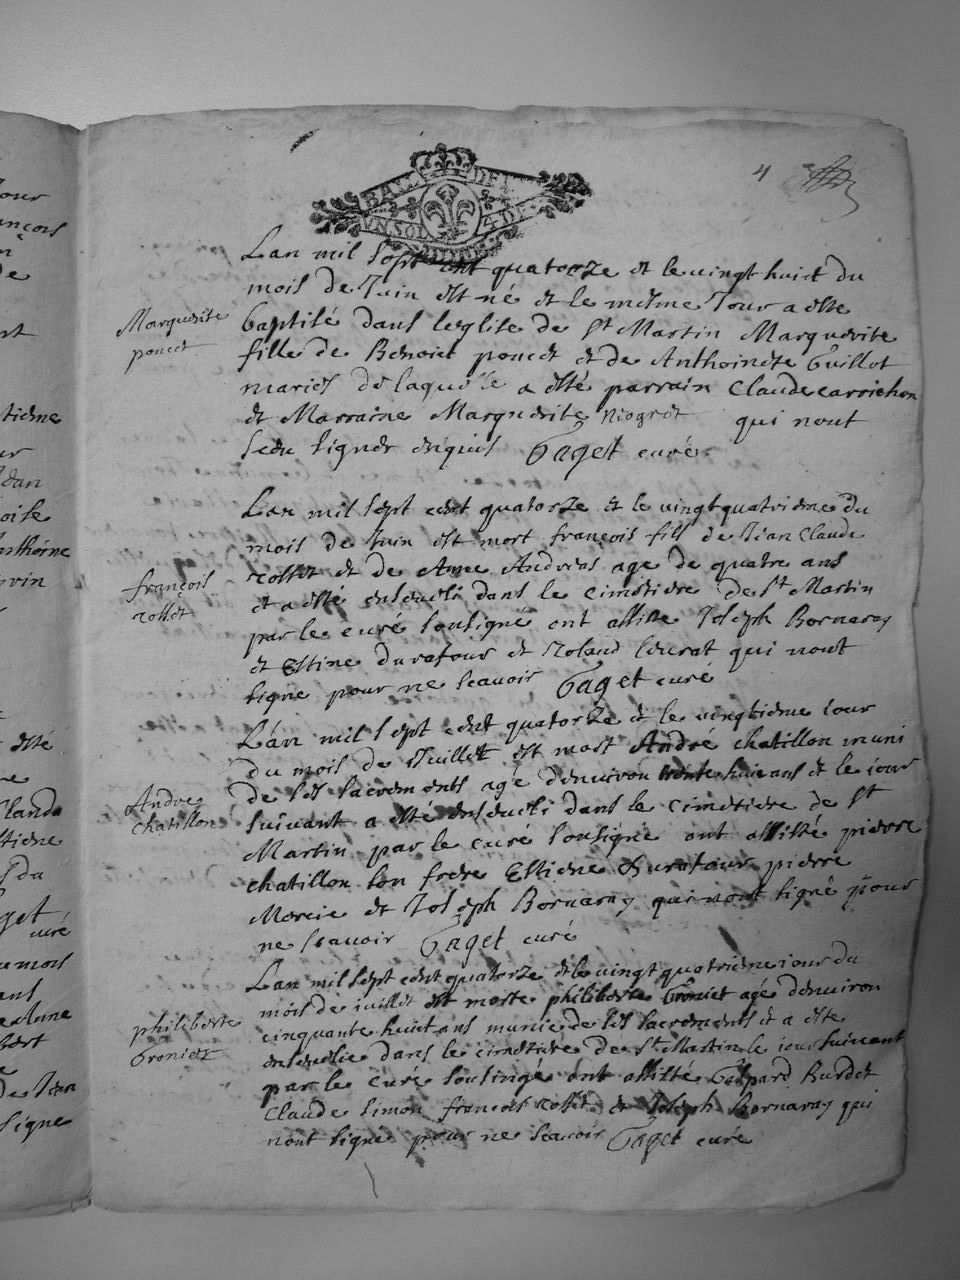 4
Lan mil sept cent quatorze et le vingt huict du
mois de Juin est né et le mesme Jour a esté
Marguerite
baptisé dans leglise de St Martin Marguerite
poncet
fille de Benoict poncet et de Anthoinete Guillot
mariés de laquelle a esté parrain Claude carrichon
et Marraine Marguerite Niogret qui nont
sceu signer enquis Gaget curé
Lan mil sept cent quatorze et le vingt quatrieme du
mois de Juin est mort françois fils de Jean Claude
françois
rosset
rosset et de Anne Andrieu age de quatre ans
et a esté enseueli dans le cimetiere de St Martin
par le curé sousigné ont assisté Joseph Bornaray
et Estiene duratour et Roland lieurat qui nont
signe pour ne scauoir Gaget curé
Lan mil sept cent quatorze et le vingtieme iour
du mois de Juillet est mort André chatillon muni
Andre
chatillon
de ses sacrements agé denuiron trente huict ans et le iour
suiuant a esté enseueli dans le cimetiere de St
Martin par le curé sousigné ont assisté pierre
chatillon son frere Estiene Duratour pierre
Mercie et Joseph Bornaray qui nont signé pour
ne scauoir Gaget curé
Lan mil sept cent quatorze et le vingt quatrieme iour du
mois de iuillet est morte philiberte Groniet agé denuiron
philiberte
Groniet
cinquante huict ans munie de ses sacrements et a este
enseuelie dans le cimetiere de St Martin le iour suiuant
par le curé sousigné ont assisté Gaspard Burdet
Claude simon françois rosset et Joseph Bornaray qui
nont signe pour ne scauoir Gaget curé